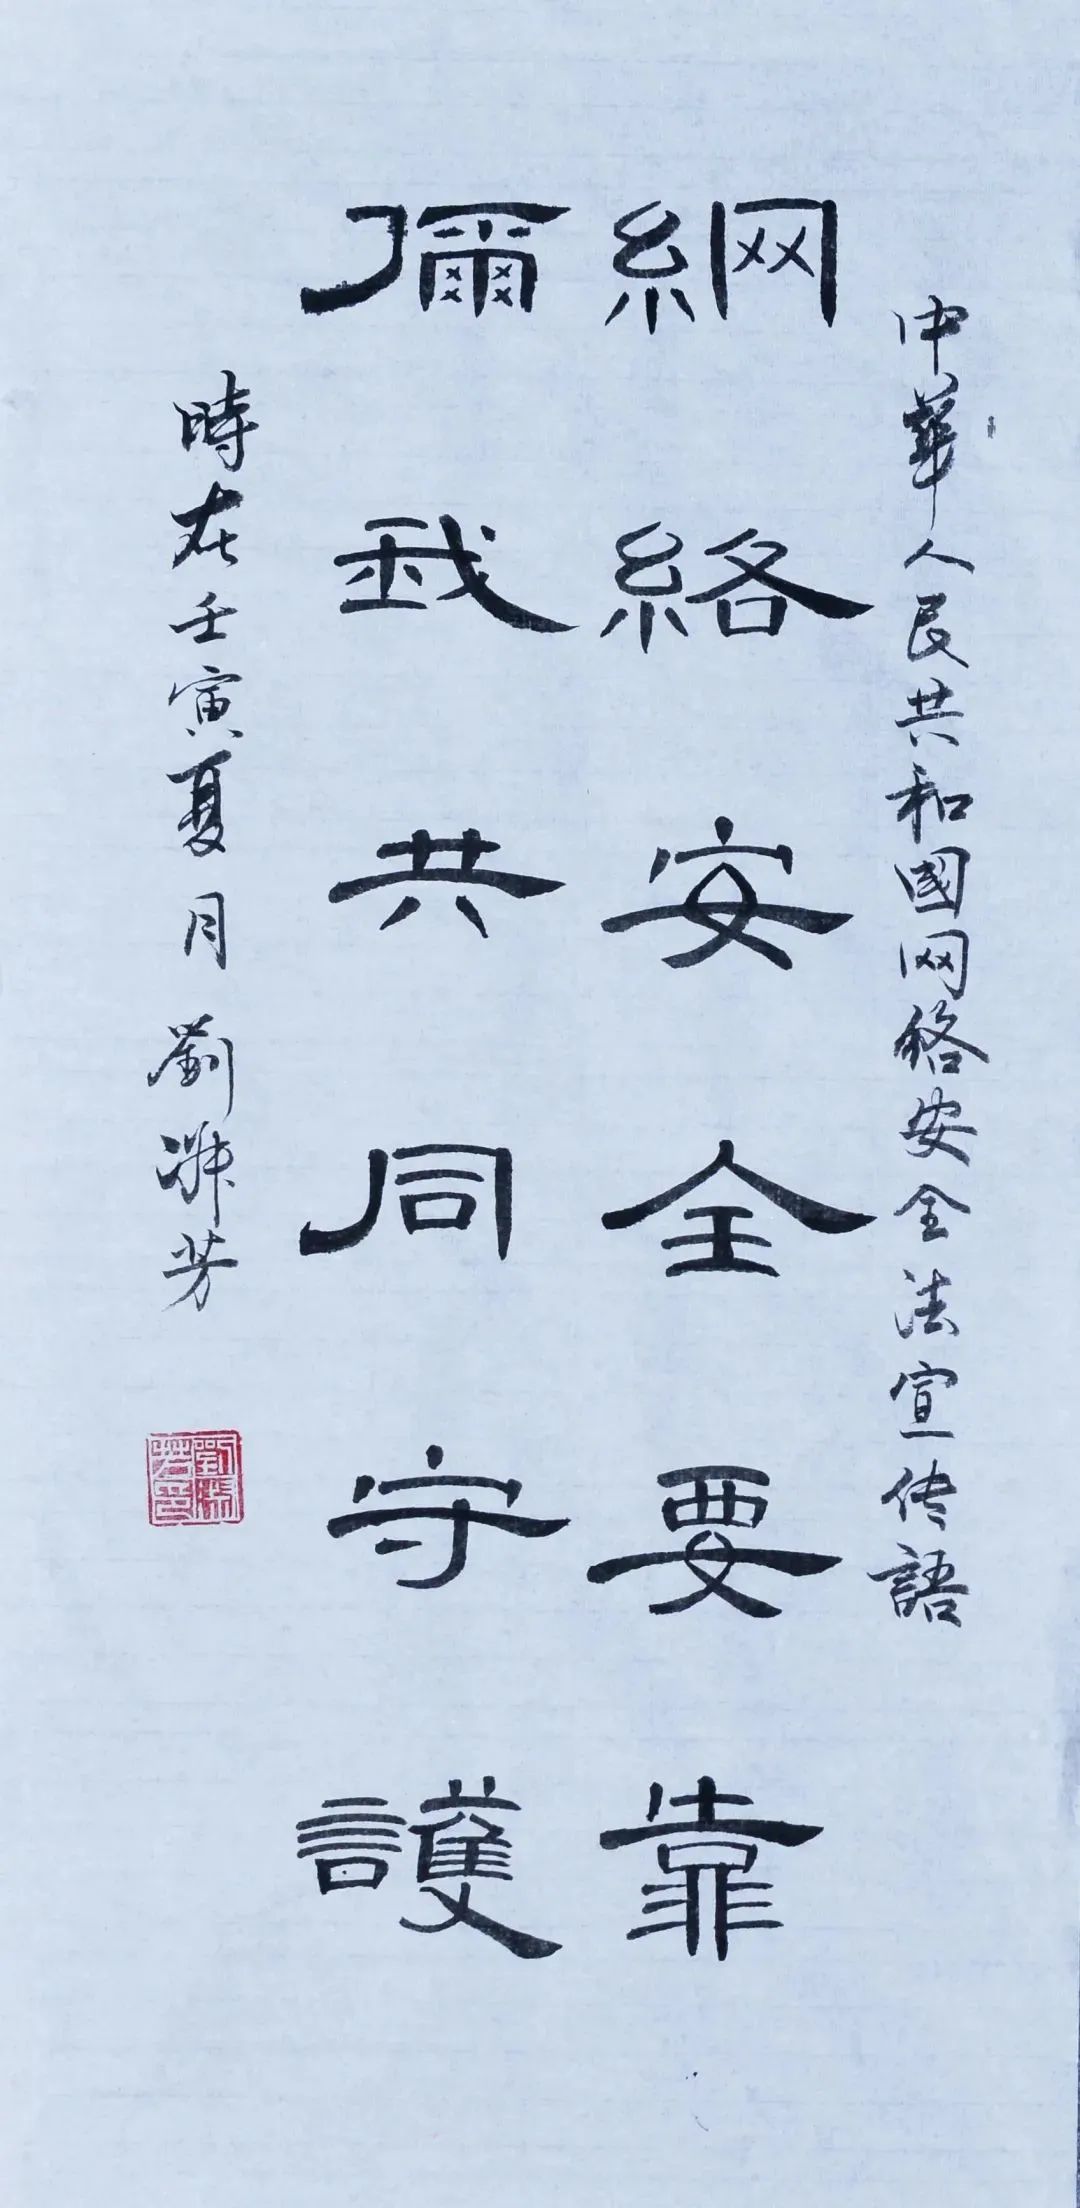 中華人民共和國网絡安全法宣传語
網絡安全要靠
儞我共同守護
時在壬寅夏月劉芳